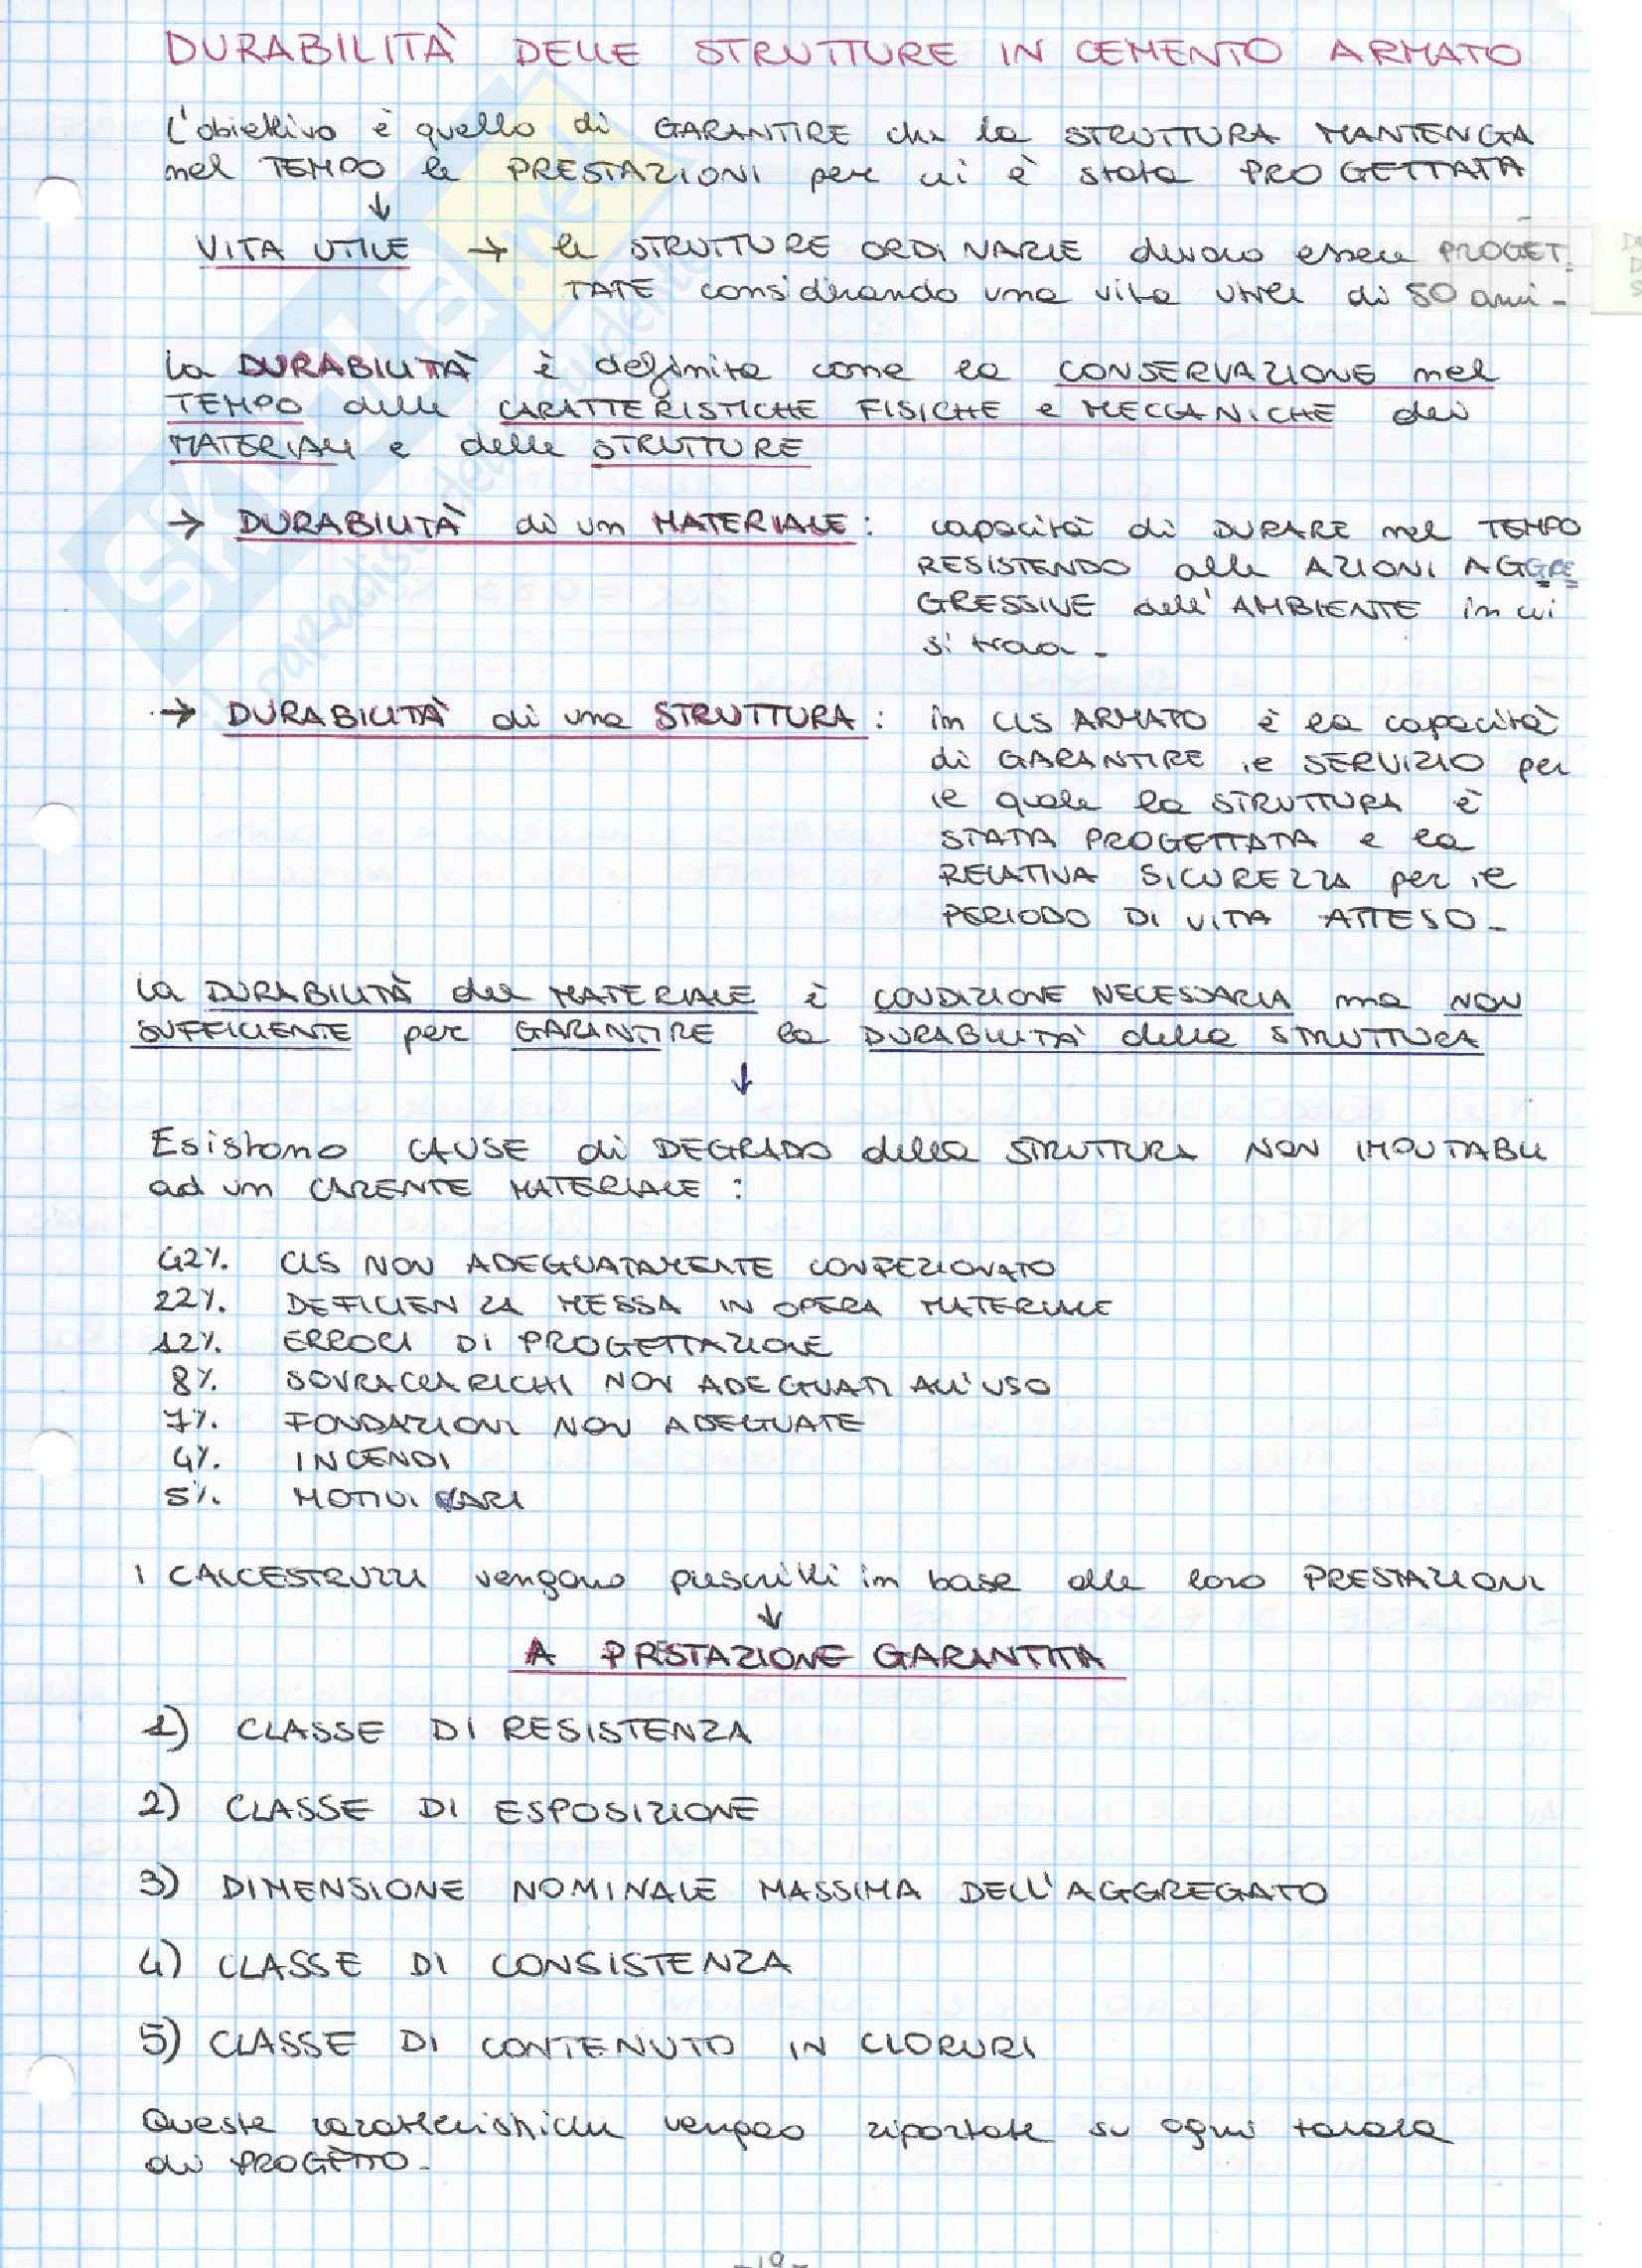 DURABILITÀ DELLE STRUTTURE IN CEMENTO ARMATO
L'obiettivo è quello di GARANTIRE che la STRUTTURA MANTENGA
nel TEMPO le PRESTAZIONI per cui è stata PROGETTATA
↓
VITA UTILE → le STRUTTURE ORDINARIE devono essere PROGET
TATE considerando una vita utile di 50 anni -
La DURABILITÀ è definita come la CONSERVAZIONE nel
TEMPO delle CARATTERISTICHE FISICHE e MECCANICHE dei
MATERIALI e delle STRUTTURE
→ DURABILITÀ di un MATERIALE : capacità di DURARE nel TEMPO
RESISTENDO alle AZIONI AGGRE
GRESSIVE dell'AMBIENTE in cui
si trova -
→ DURABILITÀ di una STRUTTURA : in CLS ARMATO è la capacità
di GARANTIRE il SERVIZIO per
il quale la STRUTTURA è
STATA PROGETTATA e la
RELATIVA SICUREZZA per il
PERIODO DI VITA ATTESO -
La DURABILITÀ del MATERIALE è CONDIZIONE NECESSARIA ma NON
SUFFICIENTE per GARANTIRE la DURABILITÀ della STRUTTURA
↓
Esistono CAUSE di DEGRADO della STRUTTURA NON IMPUTABILI
ad un CARENTE MATERIALE :
42% CLS NON ADEGUATAMENTE CONFEZIONATO
22% DEFICIENZA MESSA IN OPERA MATERIALE
12% ERRORI DI PROGETTAZIONE
8% SOVRACCARICHI NON ADEGUATI ALL'USO
7% FONDAZIONI NON ADEGUATE
4% INCENDI
5% MOTIVI VARI
I CALCESTRUZZI vengono prescritti in base alle loro PRESTAZIONI
↓
A PRESTAZIONE GARANTITA
1) CLASSE DI RESISTENZA
2) CLASSE DI ESPOSIZIONE
3) DIMENSIONE NOMINALE MASSIMA DELL'AGGREGATO
4) CLASSE DI CONSISTENZA
5) CLASSE DI CONTENUTO IN CLORURI
Queste caratteristiche vengono riportate su ogni tavola
di PROGETTO -
-19-